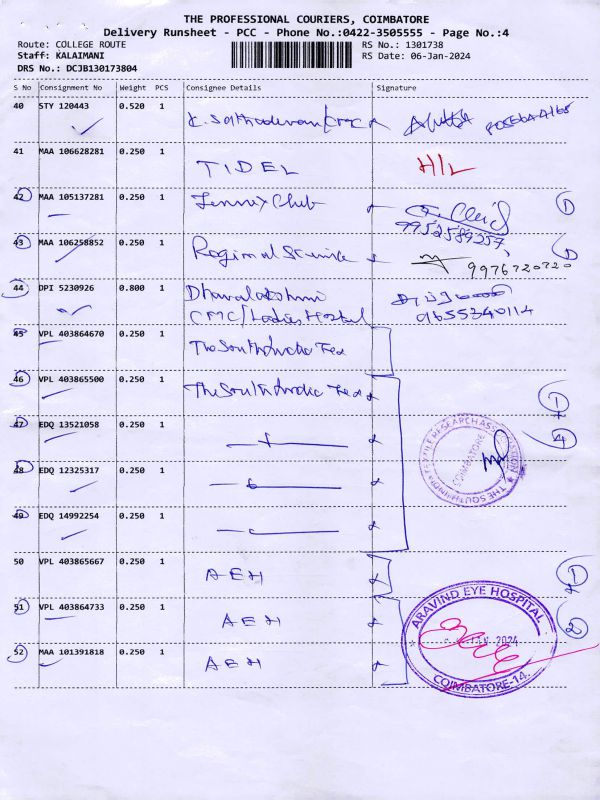 THE PROFESSIONAL COURIERS, COIMBATORE
Delivery Runsheet - PCC - Phone No.:0422-3505555 - Page No.:4
Route: COLLEGE ROUTE RS No.: 1301738
Staff: KALAIMANI RS Date: 06-Jan-2024
DRS No.: DCJB130173804
S No Consignment No Weight PCS Consignee Details Signature
40 STY 120443 0.520 1
41 MAA 106628281 0.250 1 TIDEL H/L
42 MAA 105137281 0.250 1 Club 1
9952589257
43 MAA 106258852 0.250 1 Regional 1
9976720720
44 DPI 5230926 0.800 1 Dhanalakshmi
CMC/Ladies Hostel 9655340114
45 VPL 403864670 0.250 1 The South India Tex
46 VPL 403865500 0.250 1 The South India Tex 1
47 EDQ 13521058 0.250 1 4
THE SOUTH INDIA TEXTILE RESEARCH ASSOCIATION
COIMBATORE
48 EDQ 12325317 0.250 1
49 EDQ 14992254 0.250 1
50 VPL 403865667 0.250 1 AEH 1
51 VPL 403864733 0.250 1 AEH 2
ARAVIND EYE HOSPITAL
JAN 2024
COIMBATORE-14.
52 MAA 101391818 0.250 1 AEH